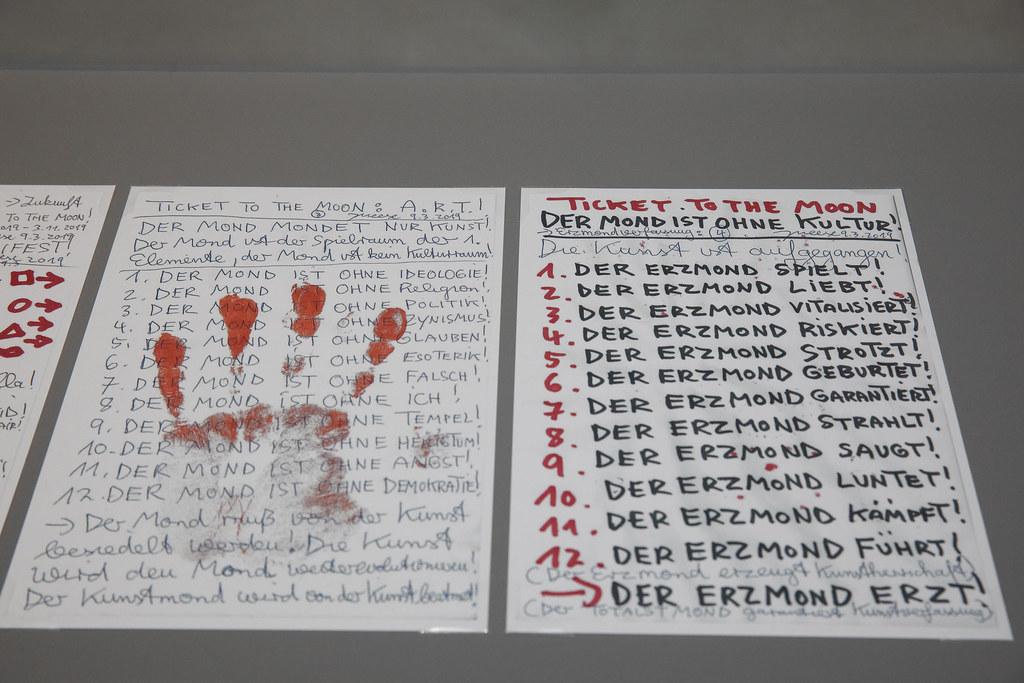 → Zukunft
TO THE MOON!
2019 - 3.11.2019
9.3.2019
IFEST!
2019!
TICKET TO THE MOON: A.R.T.!
③ Meese 9.3.2019
DER MOND MONDET NUR KUNST!
Der Mond ist der Spielraum der 1.
Elemente, der Mond ist kein Kulturraum!
1. DER MOND IST OHNE IDEOLOGIE!
2. DER MOND IST OHNE Religion!
3. DER MOND IST OHNE POLITIK!
4. DER MOND IST OHNE ZYNISMUS!
5. DER MOND IST OHNE GLAUBEN!
6. DER MOND IST OHNE ESOTERIK!
7. DER MOND IST OHNE FALSCH!
8. DER MOND IST OHNE ICH!
9. DER MOND IST OHNE TEMPEL!
10. DER MOND IST OHNE HEILIGTUM!
11. DER MOND IST OHNE ANGST!
12. DER MOND IST OHNE DEMOKRATIE!
→ Der Mond muß von der Kunst
besiedelt werden! Die Kunst
wird den Mond weiterevolutionieren!
Der Kunstmond wird von der Kunst beatmet!
TICKET TO THE MOON
DER MOND IST OHNE KULTUR!
→ Erzmondverfassung: ④ Meese 9.3.2019
Die Kunst ist aufgegangen
1. DER ERZMOND SPIELT!
2. DER ERZMOND LIEBT!
3. DER ERZMOND VITALISIERT!
4. DER ERZMOND RISKIERT!
5. DER ERZMOND STROTZT!
6. DER ERZMOND GEBURTET!
7. DER ERZMOND GARANTIERT!
8. DER ERZMOND STRAHLT!
9. DER ERZMOND SAUGT!
10. DER ERZMOND LUNTET!
11. DER ERZMOND KÄMPFT!
12. DER ERZMOND FÜHRT!
(Der Erzmond erzeugt Kunstherrschaft)
→ DER ERZMOND ERZT!
(Der TOTALSTMOND garantiert Kunstverfassung)